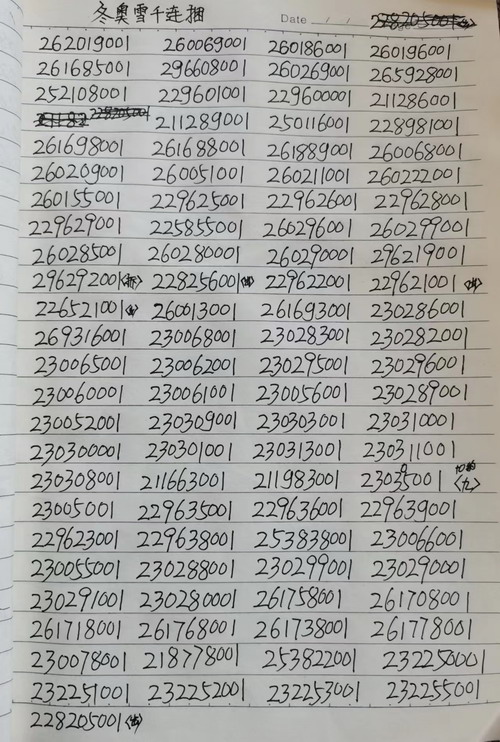 冬奥雪千连捆 Date / /
262019001 260069001 260186001 260196001
261685001 296608001 260269001 265928001
252108001 229601001 229600001 211286001
211289001 250116001 228981001
261698001 261688001 261889001 260068001
260209001 260051001 260211001 260222001
260155001 229625001 229626001 229628001
229629001 225855001 260296001 260299001
260285001 260280001 260290001 296219001
296292001 228256001 229622001 229621001
226521001 260013001 261693001 230286001
269316001 230068001 230283001 230282001
230065001 230062001 230295001 230296001
230060001 230061001 230056001 230289001
230052001 230309001 230303001 230310001
230300001 230301001 230313001 230311001
230308001 211663001 211983001 230205001
23005001 229635001 229636001 229639001
229623001 229638001 253838001 230066001
230055001 230288001 230299001 230290001
230291001 230280001 261758001 261708001
261718001 261768001 261738001 261778001
230078001 218778001 253822001 232250001
232251001 232252001 232253001 232255001
228205001